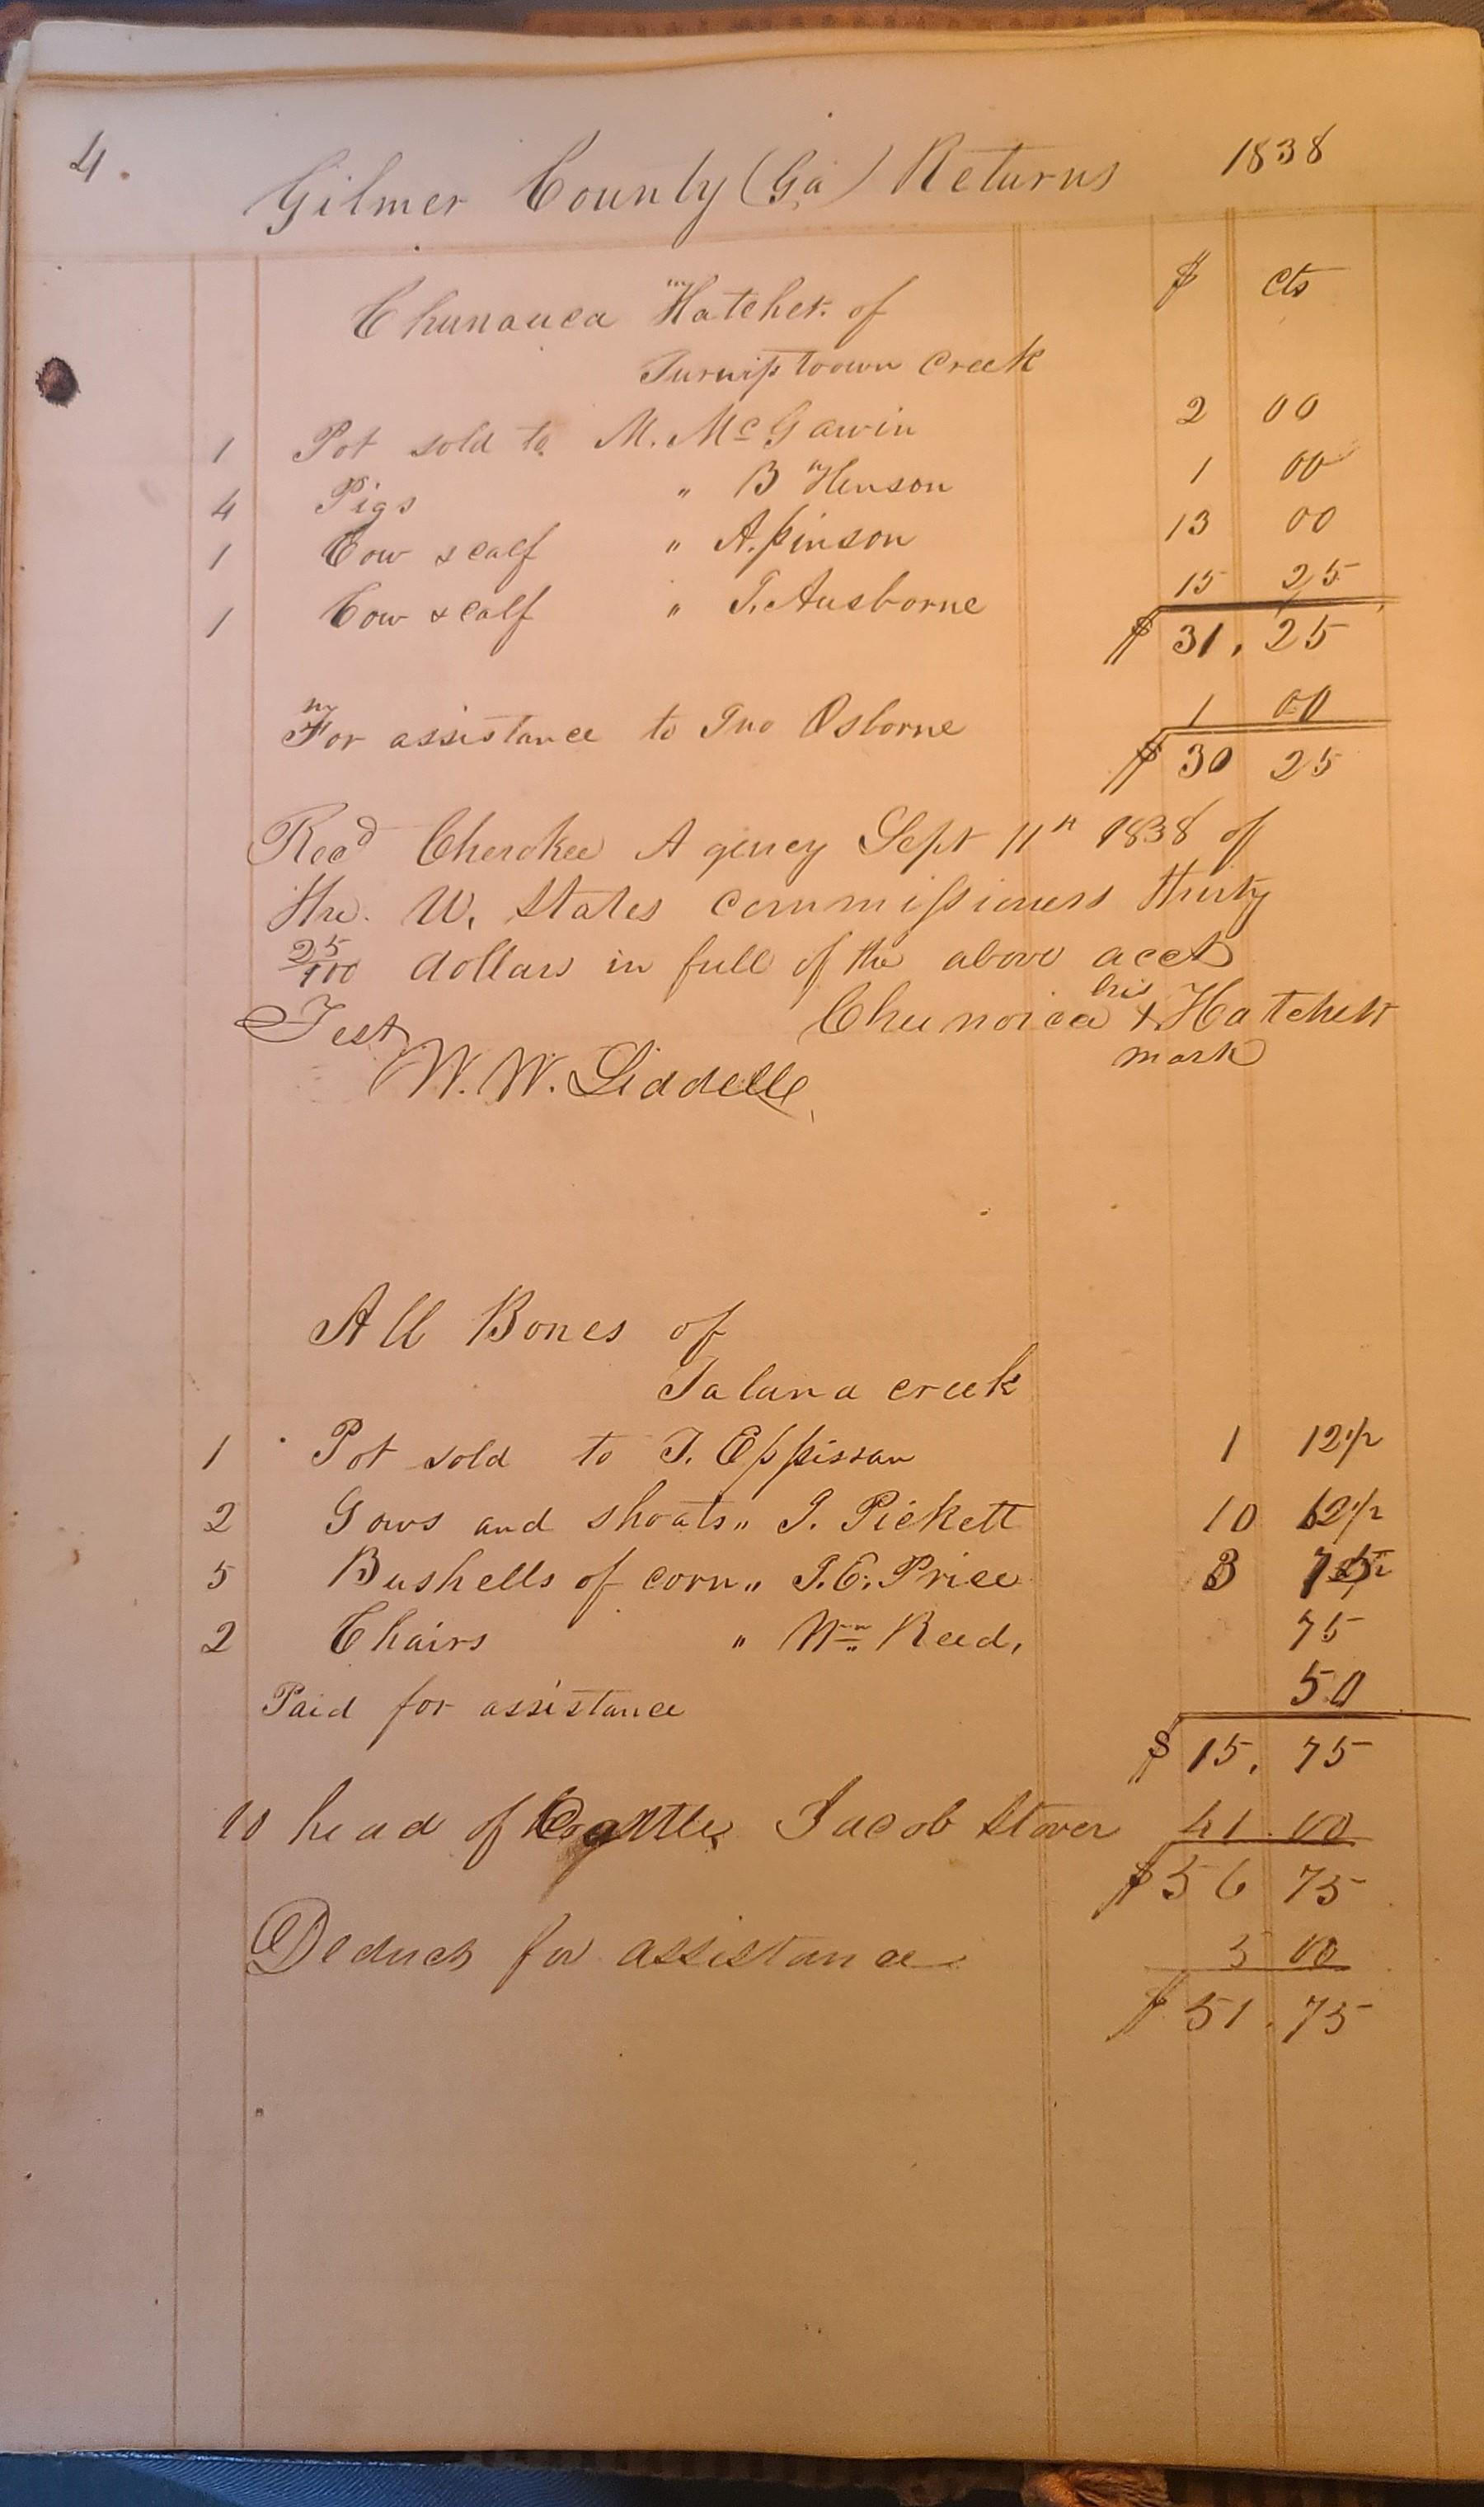 4. Gilmer County (Ga) Returns 1838
$ Cts
Chunauca Hatchet of
Turniptown Creek
1 Pot sold to M. McGawin 2 00
4 Pigs " B Henson 1 00
1 Cow & calf " A. pinson 13 00
1 Cow & calf " T. Ausborne 15 25
$ 31. 25
For assistance to Jno Osborne 1 00
$ 30 25
Recd Cherokee Agency Sept 11th 1838 of
the U. States commissioners thirty
25/100 dollars in full of the above acct
his
Test Chunoica + Hatchett
mark
W. W. Liddell
All Bones of
Talana creek
1 Pot sold to T. Eppissan 1 12 1/2
2 Sows and shoats " J. Pickett 10 62 1/2
5 Bushells of corn " J. E. Price 3
2 Chairs " Wm Reed, 75
Paid for assistance 50
$ 15. 75
10 head of Cattle Jacob Stover 41. 00
$ 56 75
Deduct for assistance 5 00
$ 51. 75